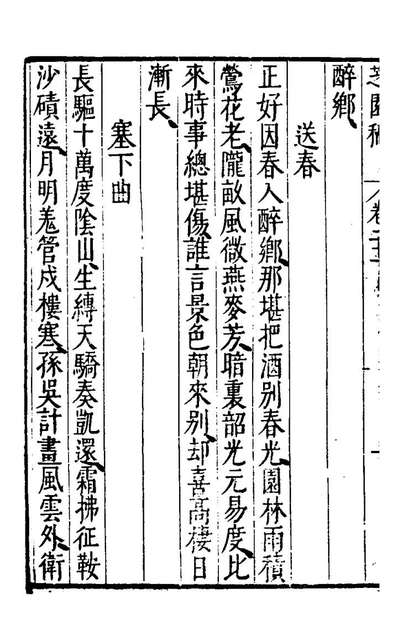 醉鄉
送春
正好因春入醉鄉那堪把酒别春光園林雨積
鶯花老隴畝風微燕麥芳暗裏韶光元易度比
來時事總堪傷誰言景色朝來别却喜高樓日
漸長
塞下曲
長驅十萬度陰山生縛天驕奏凱還霜拂征鞍
沙磧遠月明羗管戍樓寒孫吳計畫風雲外衛